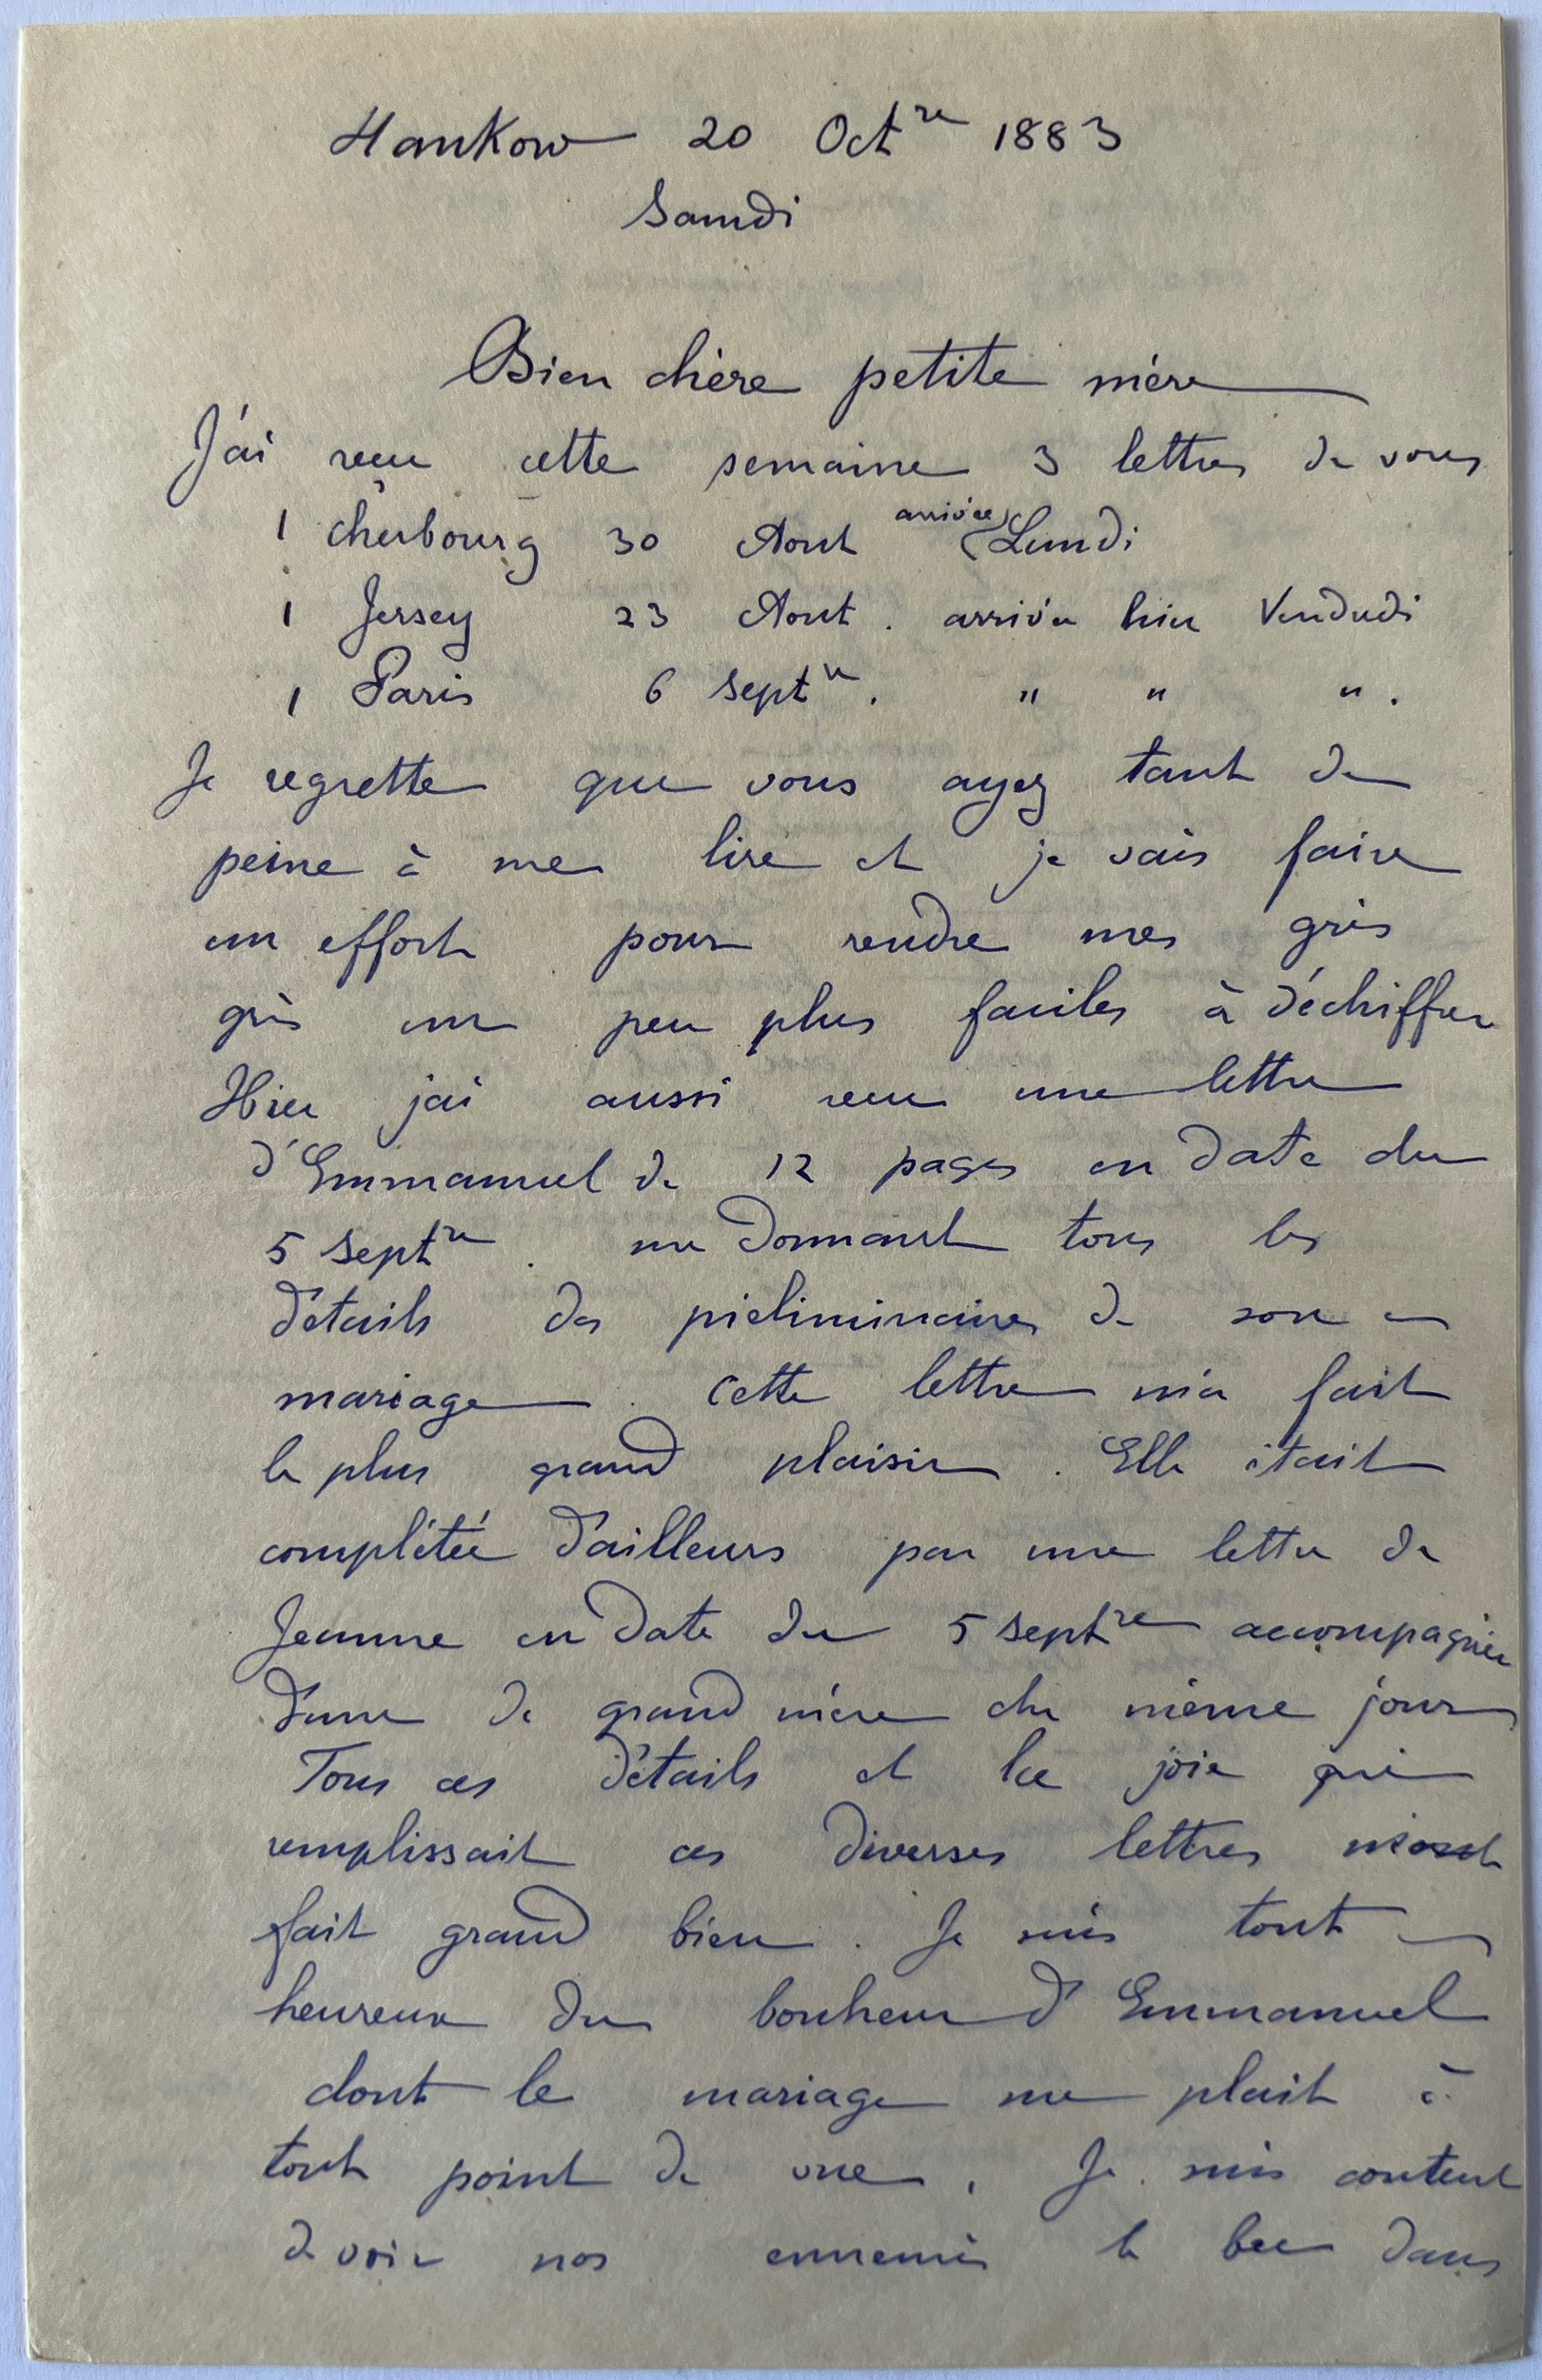 Hankow 20 Octre 1883
Samdi
Bien chère petite mère
J'ai reçu cette semaine 3 lettres de vous
1 Cherbourg 30 Aout (arrivée) Lundi
1 Jersey 23 Aout. arrivée hier Vendredi
1 Paris 6 Septre. " " ".
Je regrette que vous ayez tant de
peine à me lire et je vais faire
un effort pour rendre mes gris
gris un peu plus faciles à déchiffrer
Hier j'ai aussi reçu une lettre
d'Emmanuel de 12 pages en date du
5 Septre. me donnant tous les
détails des préliminaires de son
mariage. Cette lettre m'a fait
le plus grand plaisir. Elle était
complétée d'ailleurs par une lettre de
Jeanne en date du 5 Septre accompagnée
d'une de grand mère du même jour
Tous ces détails et la joie qui
remplissait ces diverses lettres m'ont
fait grand bien. Je suis tout
heureux du bonheur d'Emmanuel
dont le mariage me plait à
tout point de vue. Je suis content
de voir nos ennemis le bec dans